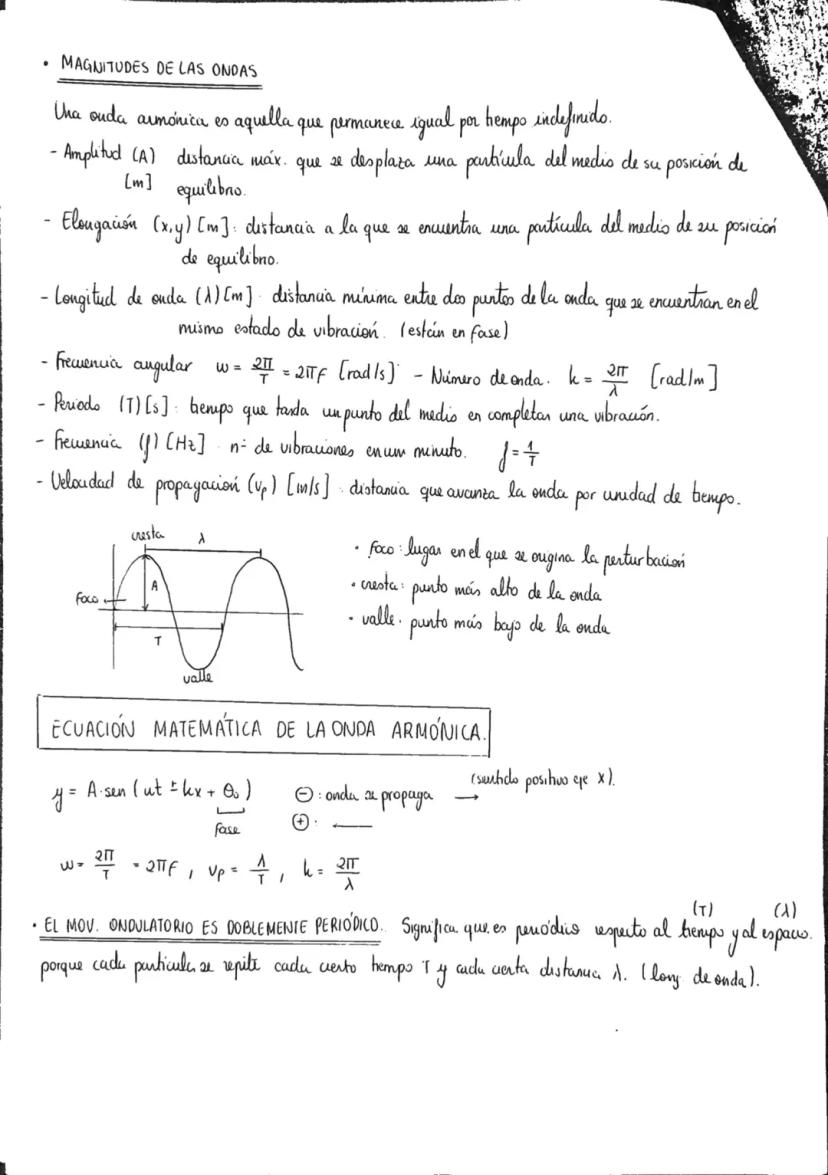 • MAGNITUDES DE LAS ONDAS
Una onda armónica es aquella que permanece igual por tiempo indefinido.
- Amplitud (A) distancia máx. que se desplaza una partícula del medio de su posición de
[m] equilibrio.
- Elongación (x,y) [m]: distancia a la que se encuentra una partícula del medio de su posición
de equilibrio.
- Longitud de onda (λ) [m]: distancia mínima entre dos puntos de la onda que se encuentran en el
mismo estado de vibración. (están en fase)
- Frecuencia angular w = 2π/T = 2πf [rad/s] - Número de onda. k = 2π/λ [rad/m]
- Periodo (T) [s]: tiempo que tarda un punto del medio en completar una vibración.
- Frecuencia (f) [Hz]. nº de vibraciones en un minuto. f = 1/T
- Velocidad de propagación (vp) [m/s]: distancia que avanza la onda por unidad de tiempo.
cresta λ
A
foco
T
valle
• foco: lugar en el que se origina la perturbación
• cresta: punto más alto de la onda
• valle. punto más bajo de la onda
ECUACIÓN MATEMÁTICA DE LA ONDA ARMÓNICA.
y = A·sen (wt ± kx + θ₀) ⊖: onda se propaga → (sentido positivo eje X).
fase ⊕: ←
w = 2π/T = 2πf, vp = λ/T, k = 2π/λ
• EL MOV. ONDULATORIO ES DOBLEMENTE PERIÓDICO. Significa que es periódico respecto al tiempo (T) y al espacio (λ).
porque cada partícula se repite cada cierto tiempo T y cada cierta distancia λ. (long de onda).